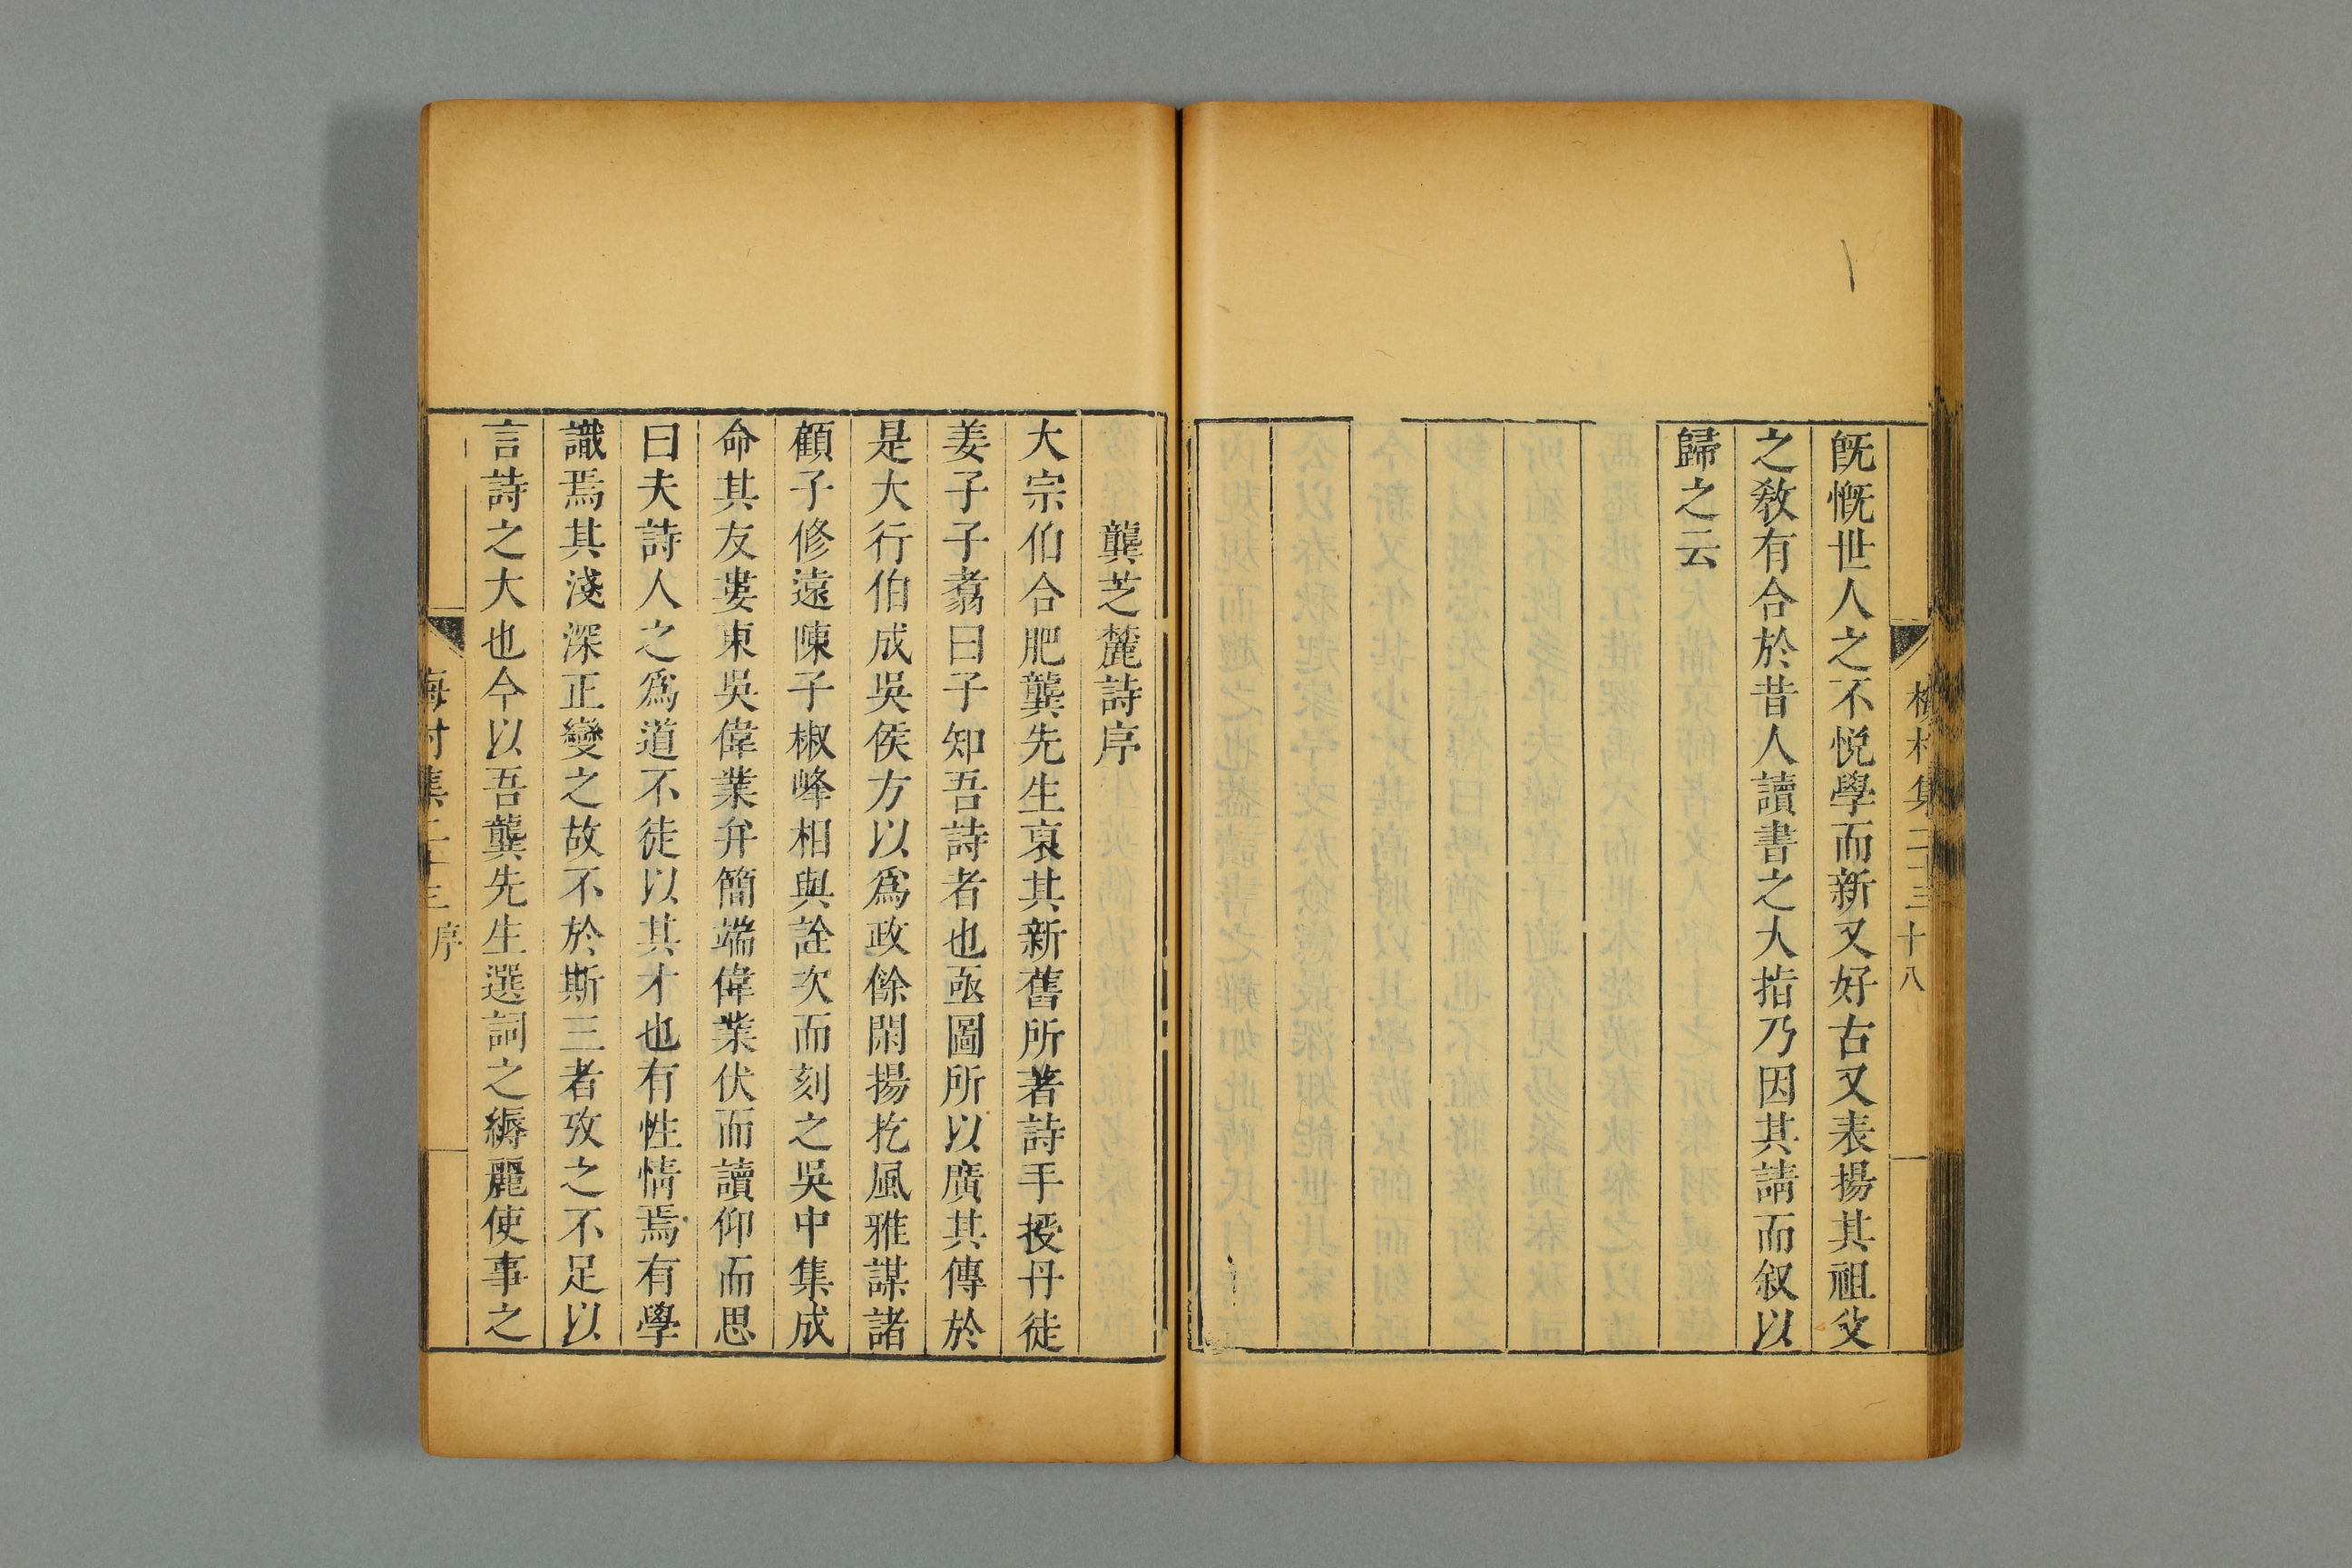 梅村集二十三 十八
旣慨世人之不悅學而新又好古又表揚其祖父
之敎有合於昔人讀書之大指乃因其請而叙以
歸之云
龔芝麓詩序
大宗伯合肥龔先生裒其新舊所著詩手授丹徒
姜子子翥曰子知吾詩者也亟圖所以廣其傳於
是大行伯成吳侯方以爲政餘閑揚扢風雅謀諸
顧子修遠陳子椒峰相與詮次而刻之吳中集成
命其友婁東吳偉業弁簡端偉業伏而讀仰而思
曰夫詩人之爲道不徒以其才也有性情焉有學
識焉其淺深正變之故不於斯三者攷之不足以
言詩之大也今以吾龔先生選詞之縟麗使事之
梅村集二十三 序